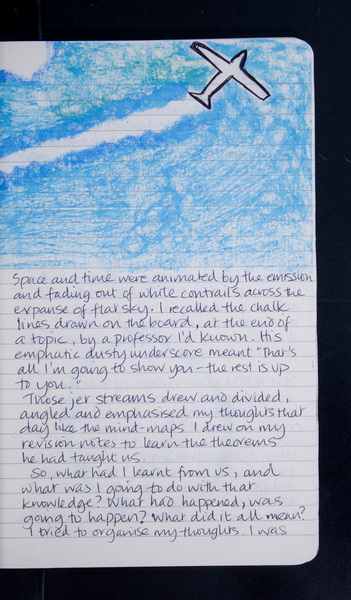 Space and time were animated by the emission
and fading out of white contrails across the
expanse of flat sky. I recalled the chalk
lines drawn on the board, at the end of
a topic, by a professor I'd known. His
emphatic dusty underscore meant "That's
all I'm going to show you – the rest is up
to you."
Those jet streams drew and divided,
angled and emphasised my thoughts that
day like the mind-maps I drew on my
revision notes to learn the theorems
he had taught us.
So, what had I learnt from us, and
what was I going to do with that
knowledge? What had happened, was
going to happen? What did it all mean?
I tried to organise my thoughts. I was